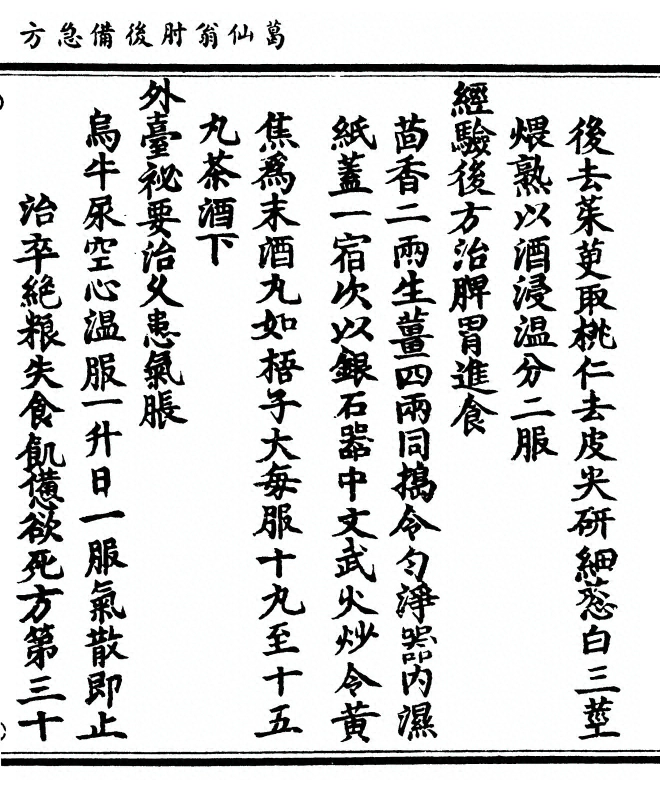 葛仙翁肘後備急方
後去茱萸取桃仁去皮尖研細葱白三莖
煨熟以酒浸温分二服
經驗後方治脾胃進食
茴香二兩生薑四兩同搗令勻淨器內濕
紙蓋一宿次以銀石器中文武火炒令黃
焦爲末酒丸如梧子大每服十丸至十五
丸茶酒下
外臺祕要治久患氣脹
烏牛尿空心温服一升日一服氣散即止
治卒絕粮失食飢憊欲死方第三十